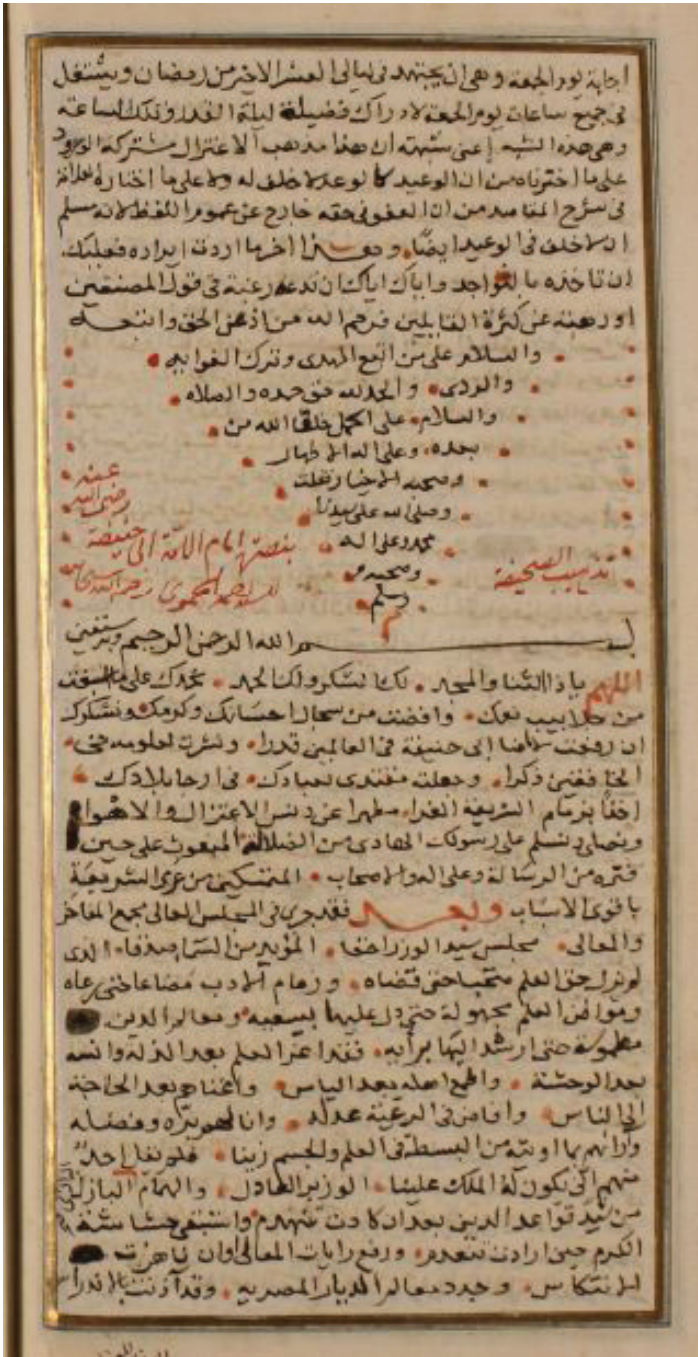 اجابة يوم الجمعة وهي ان يجتهد في ليالي العشر الاخير من رمضان ويشتغل
في جميع ساعات يوم الجمعة لادراك فضيلة ليلة القدر وتلك الساعة
وهي هذه الشبه اعني شبهته ان هذا مذهب الاعتزال مشتركة الورود
على ما اخترناه من ان الوعيد كالوعد لا خلف له ولا على ما اختاره
في شرح المقاصد من ان العفو في حقه خارج عن عموم اللفظ لانه مسلم
ان لا خلف في الوعيد ايضا وهذا اخر ما اردت ايراده فعليك
ان تاخذه بالنواجد واياك اياك ان تدعه رغبة في قول المصنفين
او رهبة عن كثرة القايلين فرحم الله من اذعن الحق واتبعه
والسلام على من اتبع الهدى وترك الغوايه
والردى والحمد لله حق حمده والصلاه
والسلام على اكمل خلق الله من
بعده وعلى اله الاطهار
وصحبه الاخيار
وصلى الله على سيدنا
محمد وعلى اله
وصحبه و
سلم
تذهيب الصحيفة
بنصرة الامام ابي حنيفة
رضي الله
عنه
للسيد احمد الحموي رحمه الله
بسم الله الرحمن الرحيم وبه نستعين
اللهم يا ذا الثنا والمجد لك الشكر ولك الحمد نحمدك على ما اسبغت
من جلابيب نعمك وافضت من سجال احسانك وكرمك ونشكرك
ان رفعت لامامنا ابي حنيفة في العالمين قدرا ونشرت لعلومه في
الخافقين ذكرا وجعلته مقتدى لعبادك في ارجا بلادك
اخذا بزمام الشريعة الغرا مطهرا عن دنس الاعتزال والاهوا
ونصلي ونسلم على رسولك الهادي من الضلالة المبعوث على حين
فترة من الرسالة وعلى اله والاصحاب المتمسكين من عرى الشريعة
باقوى الاسباب وبعد فقد جرى في المجلس العالي مجمع المفاخر
والمعالي مجلس سيد الوزرا حقا المؤيد من السما صدقا الذي
لم يزل حق العلم حتى قضاه وزمام الادب مضاعا حتى رعاه
ومواطن العلم مجهولة حتى دل عليها بسعيه ومعالم الدين
مطموسة حتى ارشد اليها برأيه فقد اعز العلم بعد الذلة وانسه
بعد الوحشة واطمع اهله بعد الياس واغناهم بعد الحاجة
الى الناس وافاض في الرعية عدله وانالهم بره وفضله
وآراهم بما اوتيه من البسطة في العلم والجسم زينا فلم يقل احد
منهم انى يكون له الملك علينا الوزير العادل والهمام الباذل
من شيد قواعد الدين بعد ان كادت تنهدم واستبقى حشاشة
الكرم حين ارادت تنعدم ورفع رايات المعالي اوان ناهزت
الانتكاس وجدد معالم الديار المصريه وقد آذنت بالاندراس